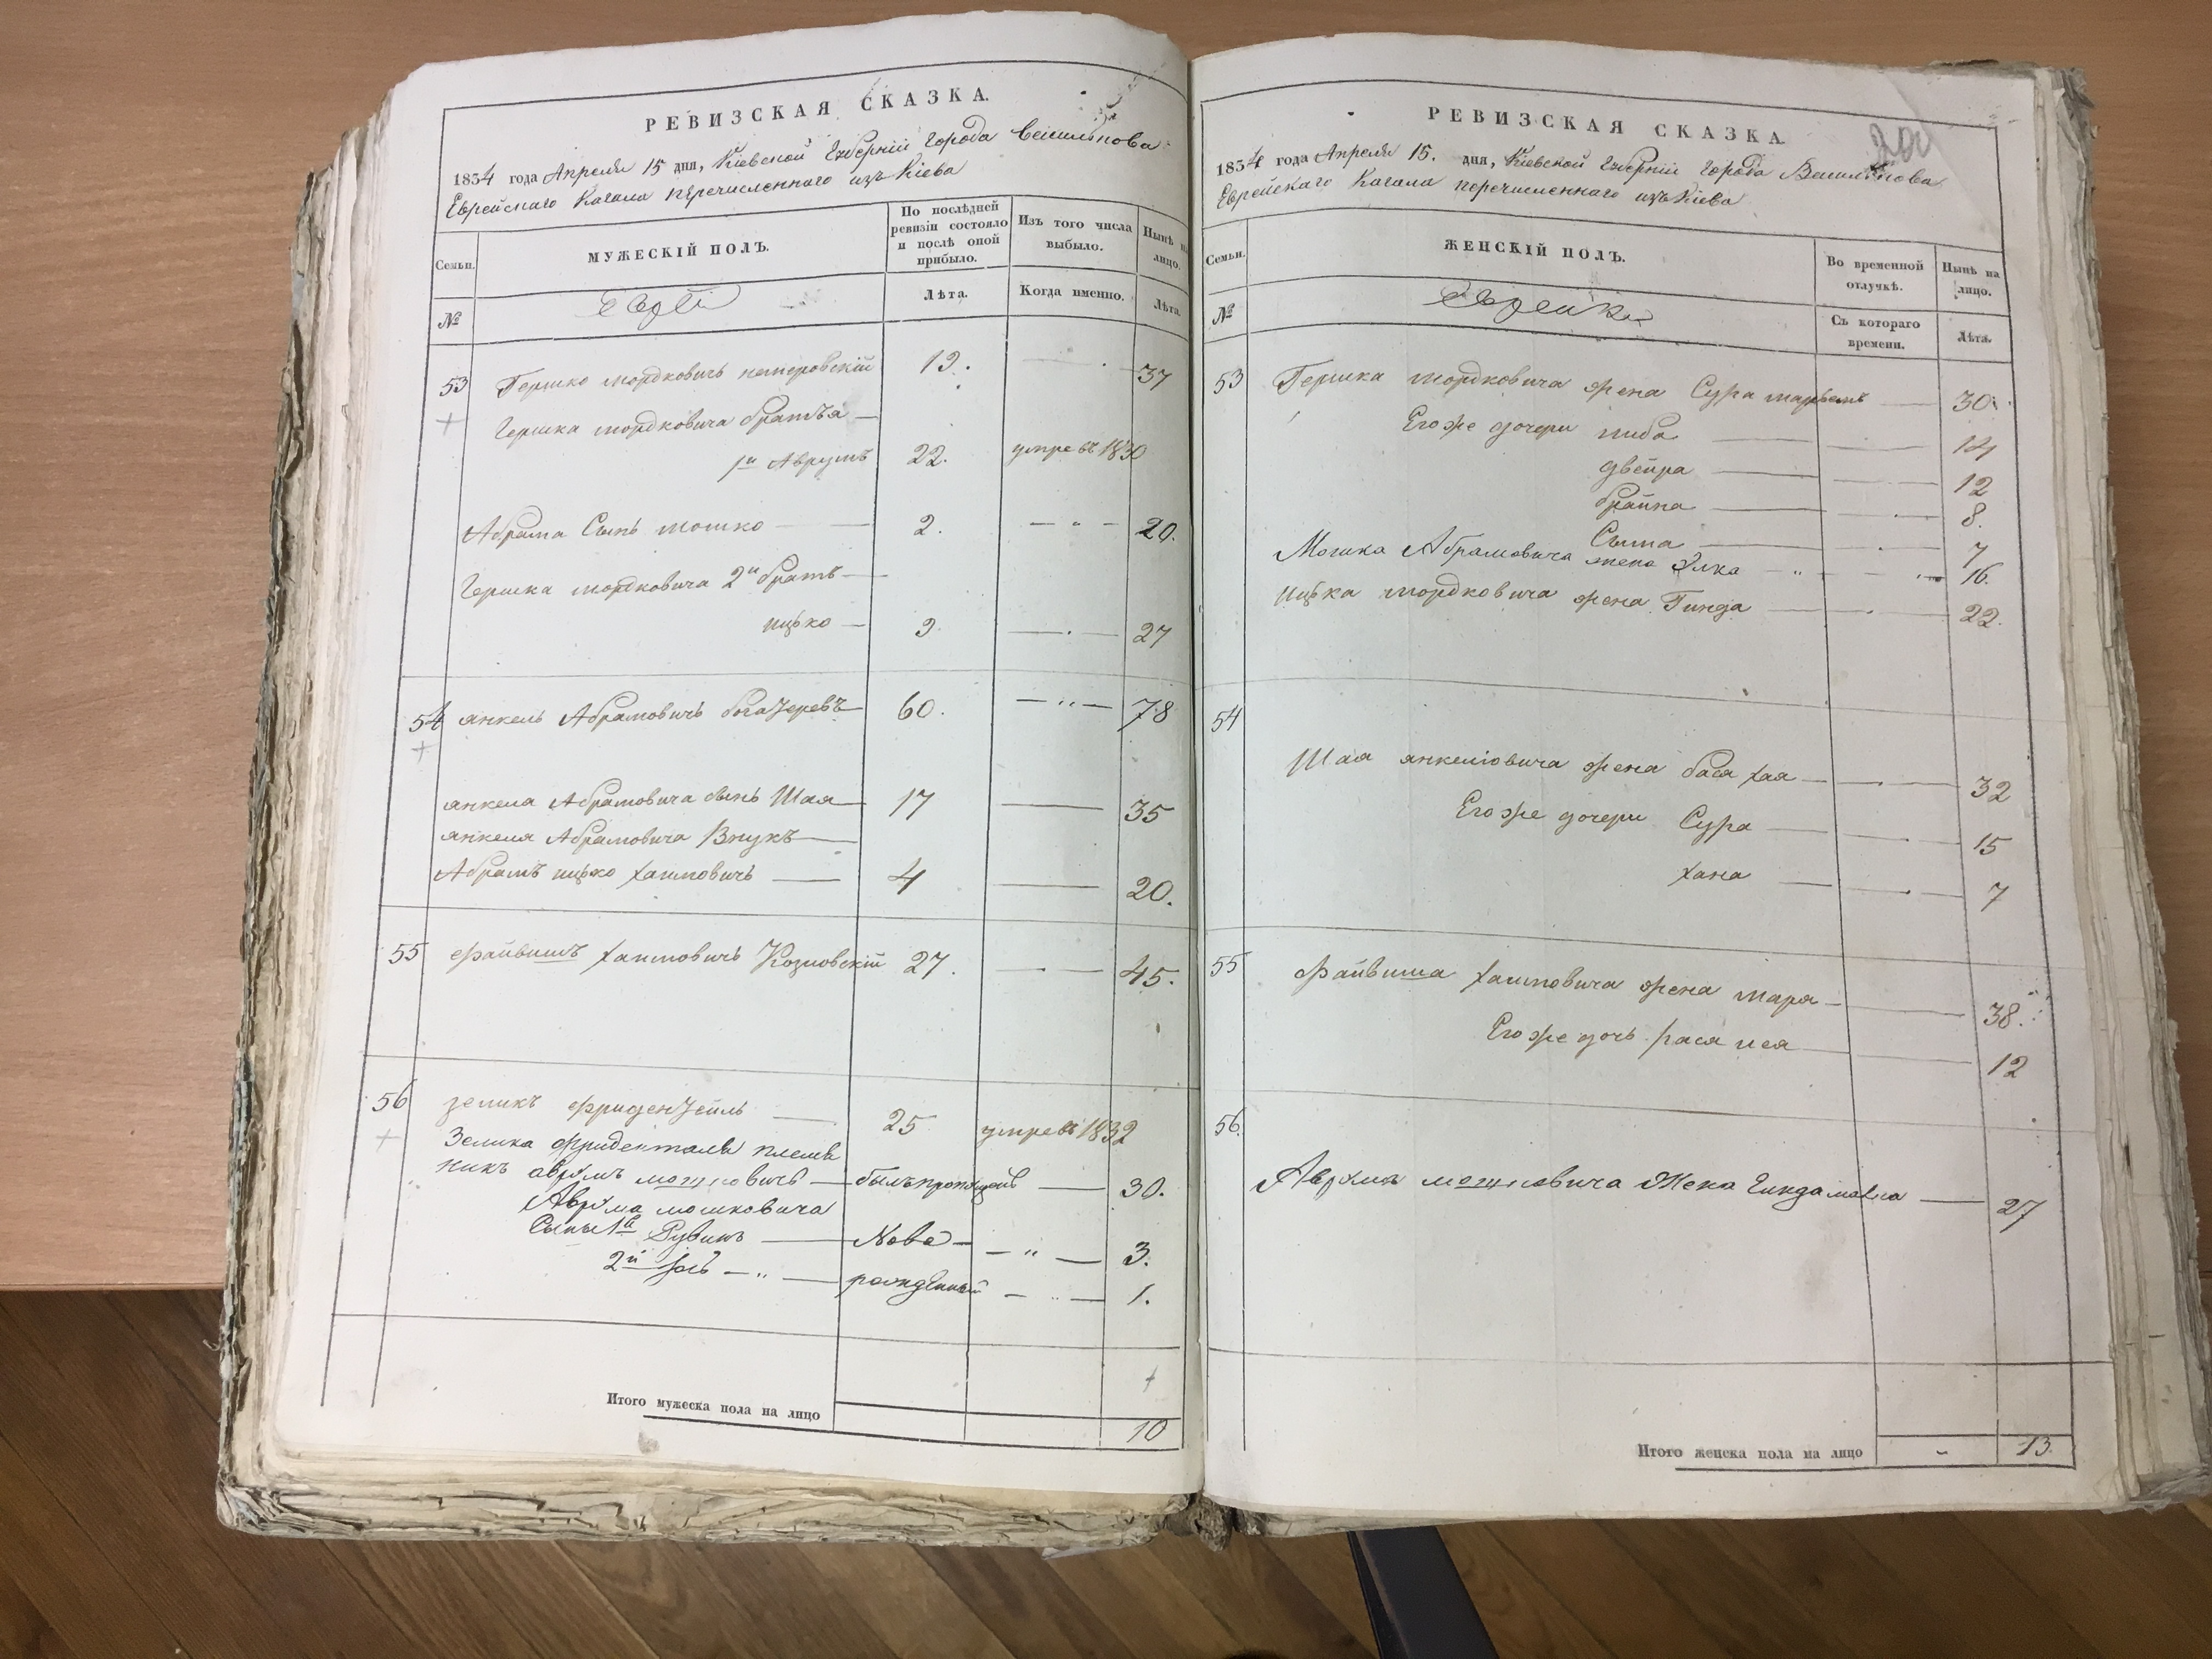 РЕВИЗСКАЯ СКАЗКА.
1834 года Апреля 15 дня, Кіевской Губерніи Города Василькова
Еврейскаго Кагала перечисленнаго изъ Кіева
Семьи.
МУЖЕСКІЙ ПОЛЪ.
По послѣдней ревизіи состояло и послѣ оной прибыло.
Изъ того числа выбыло.
Нынѣ на лицо.
№
Евреи
Лѣта.
Когда именно.
Лѣта.
53 Гершко Мордковичъ 19. 37
Гершка Мордковича братья
1й Аврумъ 22. умре въ 1830
Абрама Сынъ Мошко 2. 20.
Гершка Мордковича 2й братъ
Ицько 9 27
54 Янкель Абрамовичъ 60. 78
Янкеля Абрамовича сынъ Шая 17 35
Янкеля Абрамовича Внукъ
Абрамъ Ицько Хаимовичъ 4 20.
55 Файвишъ Хаимовичъ Козловскій 27. 45.
56 Зеликъ Фриденталь 25 умре въ 1832
Зелика Фриденталя племя
никъ Аврумъ Мошковичъ былъ пропущенъ 30.
Аврума Мошковича
Сыны 1й Рувинъ Ново 3.
2й рожденный 1.
Итого мужеска пола на лицо
10
РЕВИЗСКАЯ СКАЗКА
200
1834 года Апреля 15. дня, Кіевской Губерніи Города Василькова
Еврейскаго Кагала перечисленнаго изъ Кіева
Семьи.
ЖЕНСКІЙ ПОЛЪ.
Во временной отлучкѣ.
Нынѣ на лицо.
№
Еврейки
Съ котораго времени.
Лѣта.
53 Гершка Мордковича жена Сура 30.
Его же дочери Либа 14
Двейра 12
Брайна 8.
Сыма 7
Мошка Абрамовича жена Элка 16.
Ицька Мордковича жена Гинда 22.
54
Шая Янкелiовича жена Бася Хая 32
Его же дочери Сура 15
Хана 7
55 Файвиша Хаимовича жена Маря 38.
Его же дочь 12
56.
Аврума Мошковича Жена 27
Итого женска пола на лицо
13.